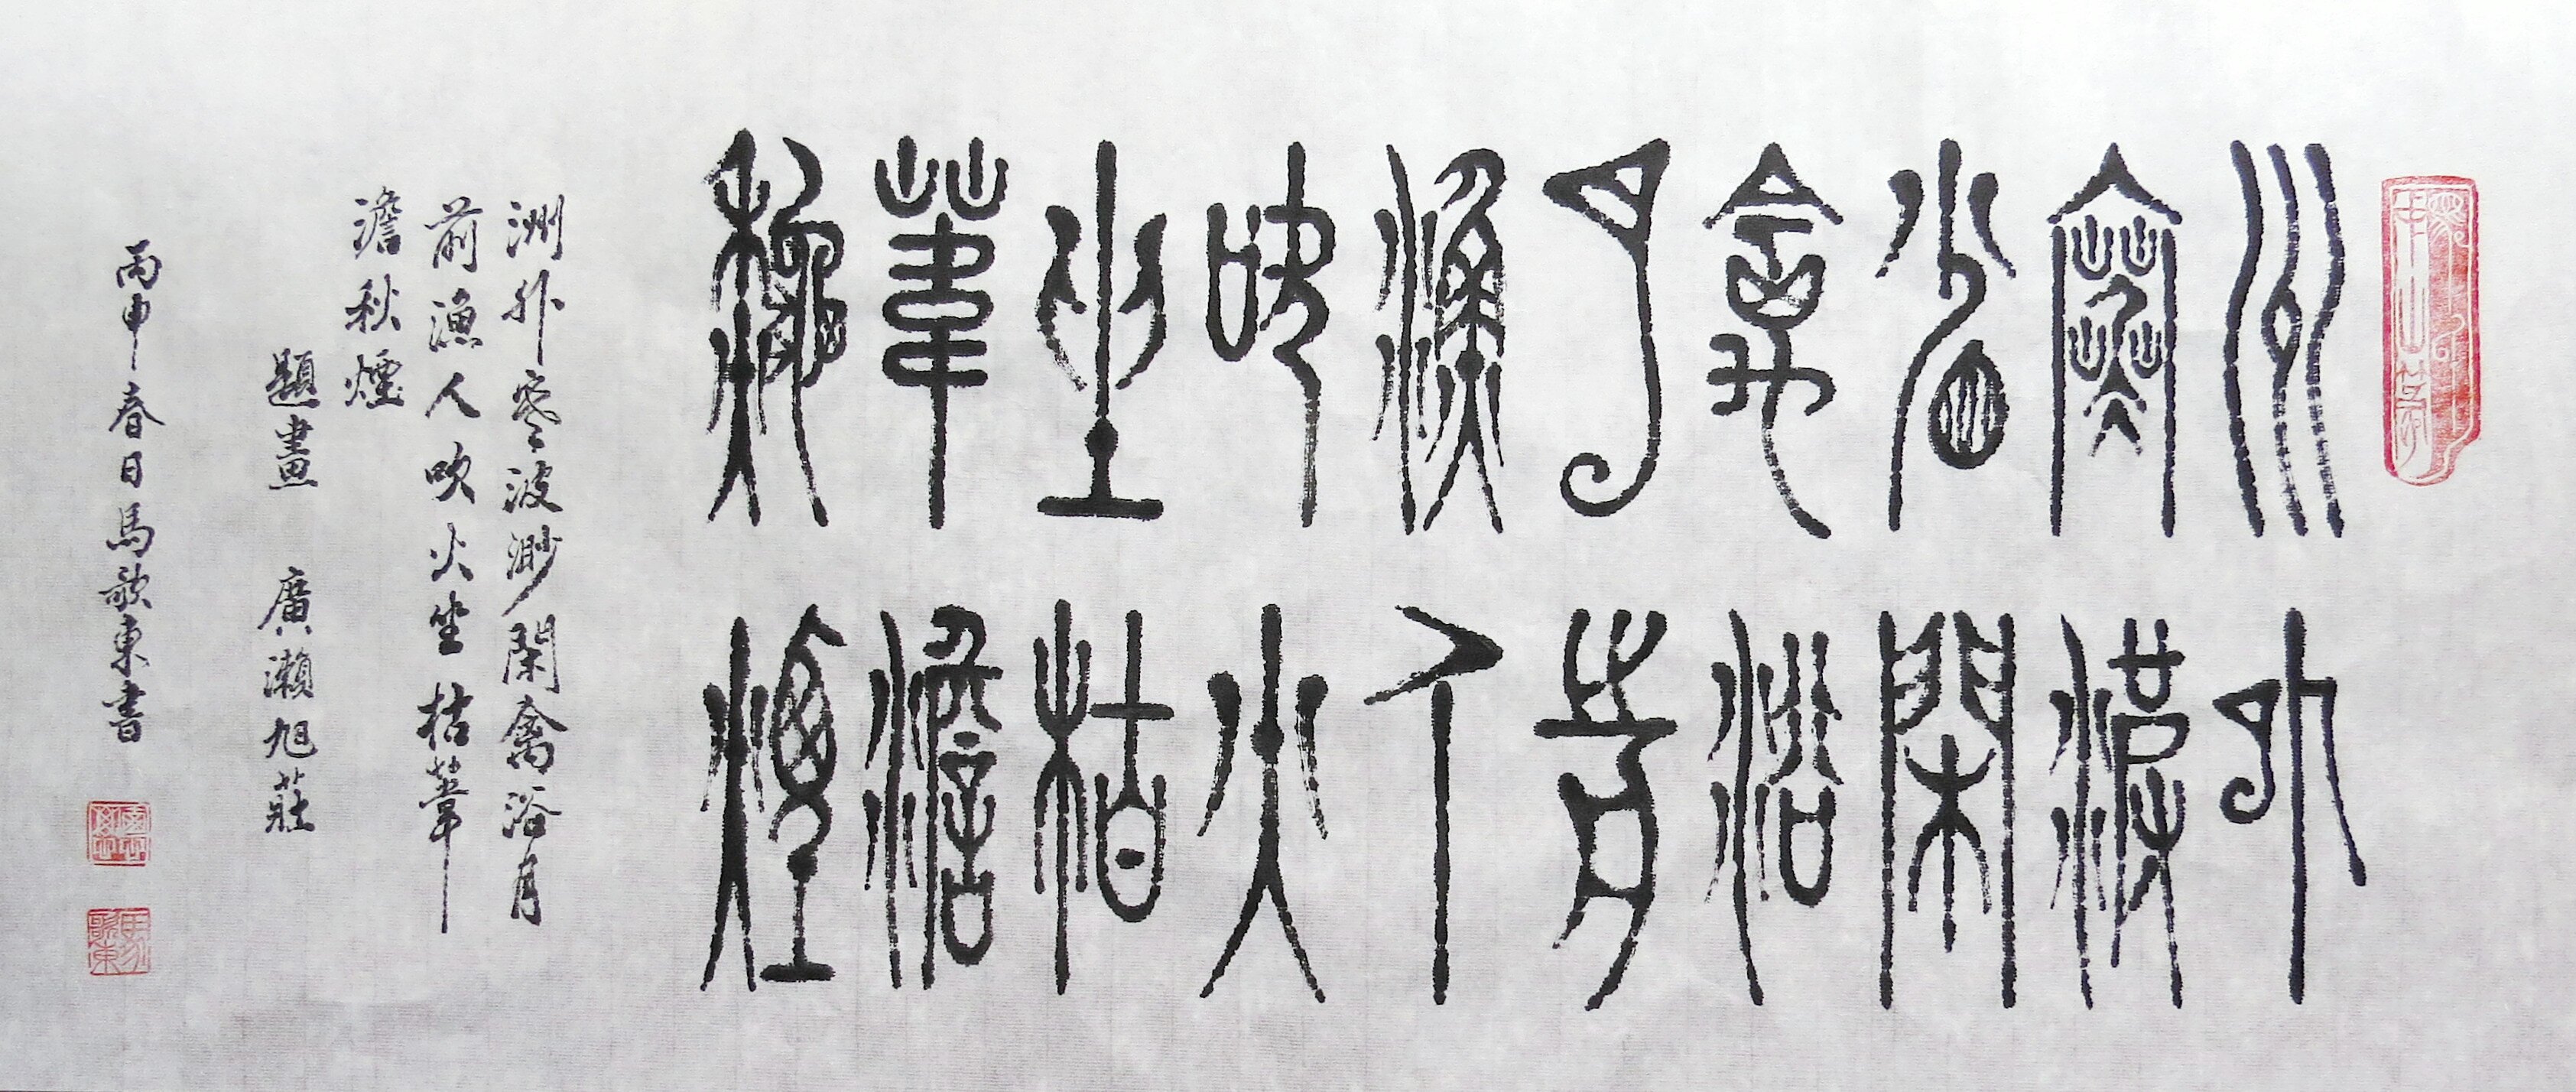 洲外
寒波
渺閑
禽浴
月前
漁人
吹火
坐枯
葦澹
秋煙
洲外寒波渺閑禽浴月
前漁人吹火坐枯葦
澹秋煙
題畫 廣瀨旭莊
丙申春日馬歌東書
馬歌東